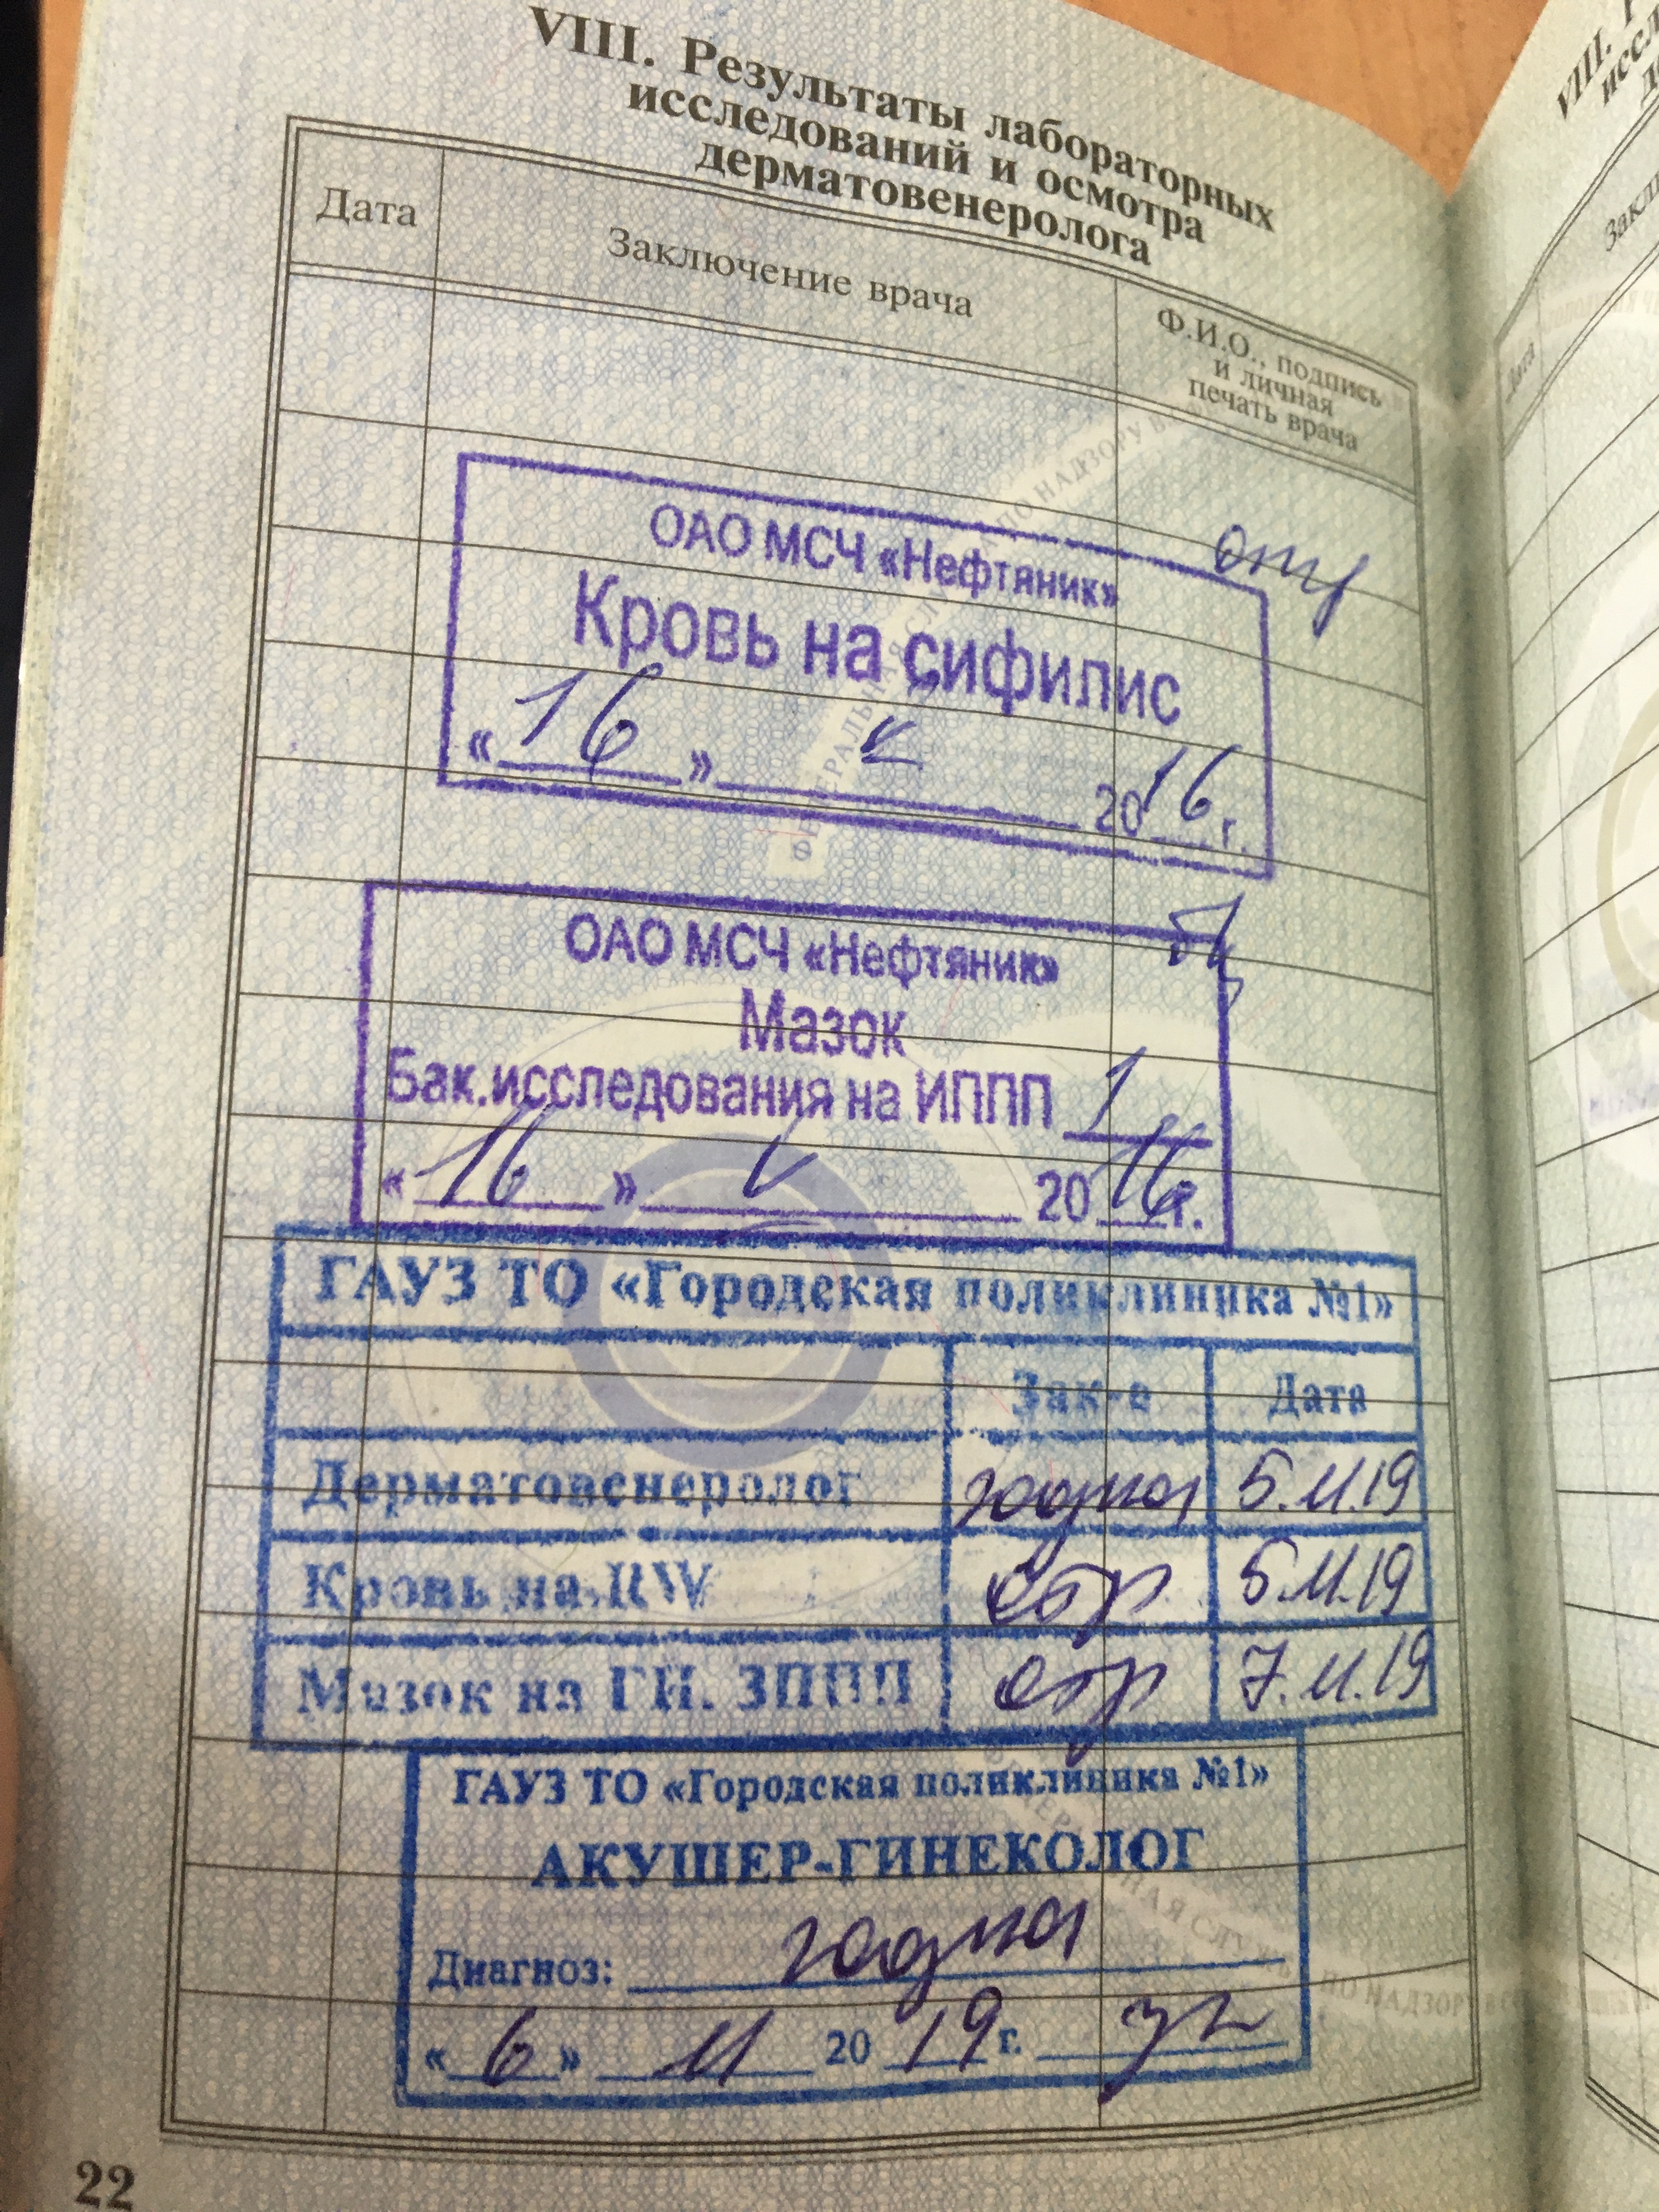 VIII. Результаты лабораторных
исследований и осмотра
дерматовенеролога
Дата
Заключение врача
Ф.И.О., подпись
и личная
печать врача
ОАО МСЧ «Нефтяник»
Кровь на сифилис
«16» 2016г.
ОАО МСЧ «Нефтяник»
Мазок
Бак.исследования на ИППП 1
«16» 2016г.
ГАУЗ ТО «Городская поликлиника №1»
Зак-е Дата
Дерматовенеролог годна 5.11.19
Кровь на RW отр 5.11.19
Мазок на ГН. ЗППП отр 7.11.19
ГАУЗ ТО «Городская поликлиника №1»
АКУШЕР-ГИНЕКОЛОГ
Диагноз: годна
«6» 11 2019г.
22